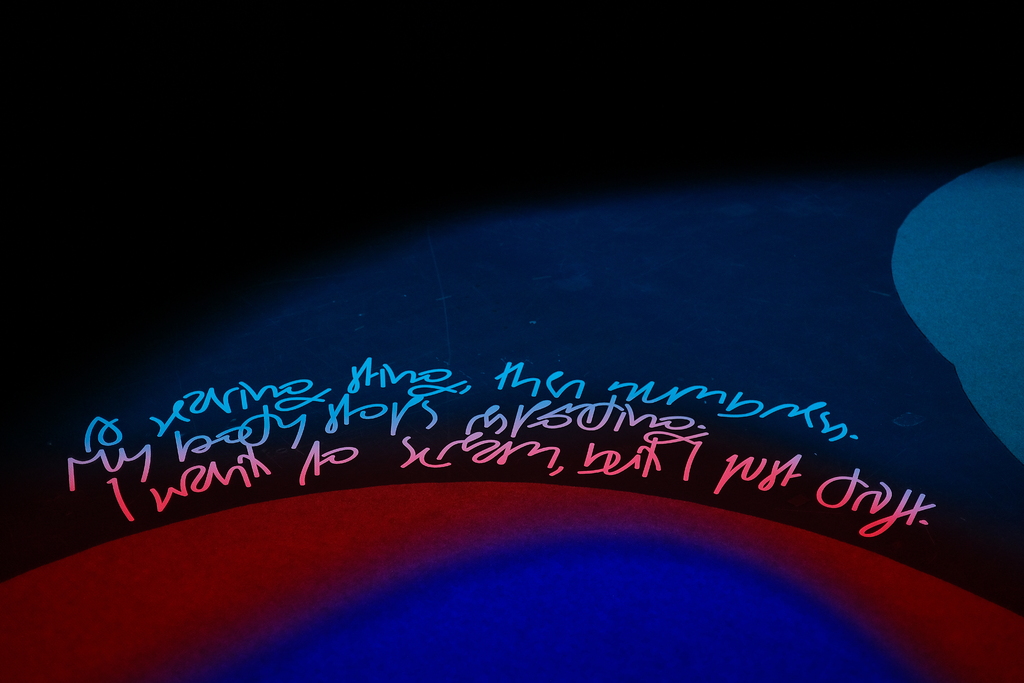 A searing sting, then numbness.
My body stops responding.
I want to scream, but I just drift.